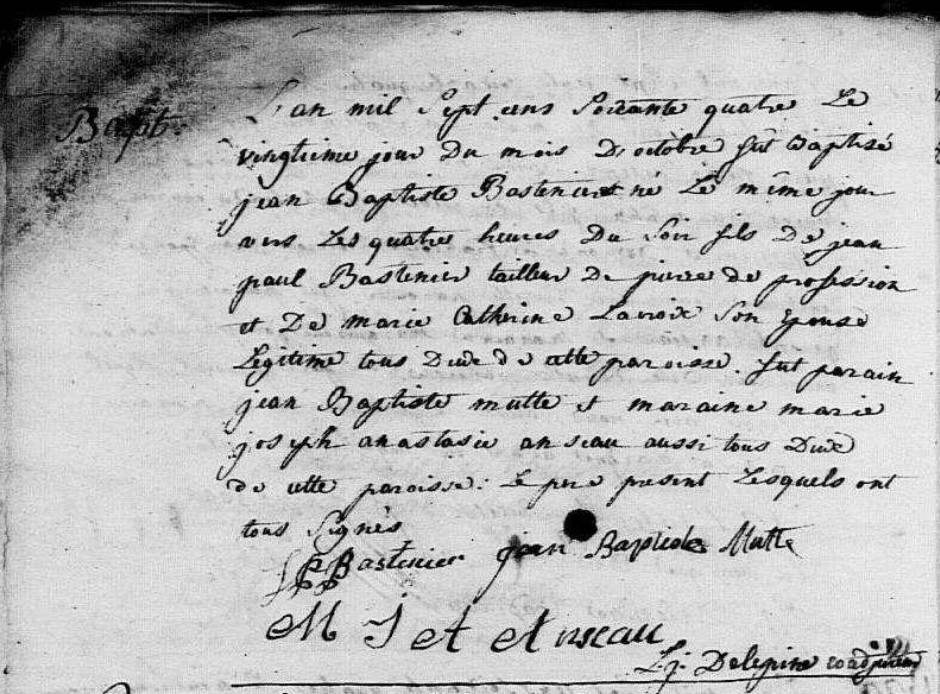 Bapt.
L'an mil Sept cens Soixante quatre Le
vingtieme jour Du mois D'octobre fut Baptizé
jean Baptiste Bastenier né Le même jour
vers Les quatre heures Du Soir fils De jean
paul Bastenier tailleur de pierre de profession
et De marie Catherine Lacroix Son Epouse
Legitime tous Deux de cette paroisse. fut parain
jean Baptiste mutte et maraine marie
joseph anastasie anseau aussi tous Deux
de cette paroisse: Le pere present Lesquels ont
tous Signés
Bastenier jean Baptiste Mutte
M J A Anseau
L. j. Delepine coadjuteur